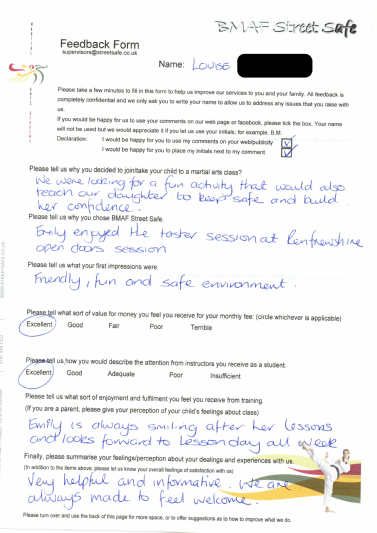 BMAF Street Safe
Feedback Form
supervisors@streetsafe.co.uk
Name: LOUISE
Please take a few minutes to fill in this form to help us improve our services to you and your family. All feedback is
completely confidential and we only ask you to write your name to allow us to address any issues that you raise with
us.
If you would be happy for us to use your comments on our web page or facebook, please tick the box. Your name
will not be used but we would appreciate it if you let us use your initials; for example. B.M.
Declaration: I would be happy for you to use my comments on your web/publicity
I would be happy for you to place my initials next to my comment
Please tell us why you decided to join/take your child to a martial arts class?
We were looking for a fun activity that would also
teach our daughter to keep safe and build
her confidence.
Please tell us why you chose BMAF Street Safe.
Emily enjoyed the taster session at Renfrewshire
open doors session
Please tell us what your first impressions were.
Friendly, fun and safe environment.
Please tell us what sort of value for money you feel you receive for your monthly fee: (circle whichever is applicable)
Excellent Good Fair Poor Terrible
Please tell us how you would describe the attention from instructors you receive as a student.
Excellent Good Adequate Poor Insufficient
Please tell us what sort of enjoyment and fulfilment you feel you receive from training.
(If you are a parent, please give your perception of your child's feelings about class)
Emily is always smiling after her lessons
and looks forward to lesson day all week
Finally, please summarise your feelings/perception about your dealings and experiences with us.
(In addition to the items above, please let us know your overall feelings of satisfaction with us)
Very helpful and informative. We are
always made to feel welcome.
Please turn over and use the back of this page for more space, or to offer suggestions as to how to improve what we do.